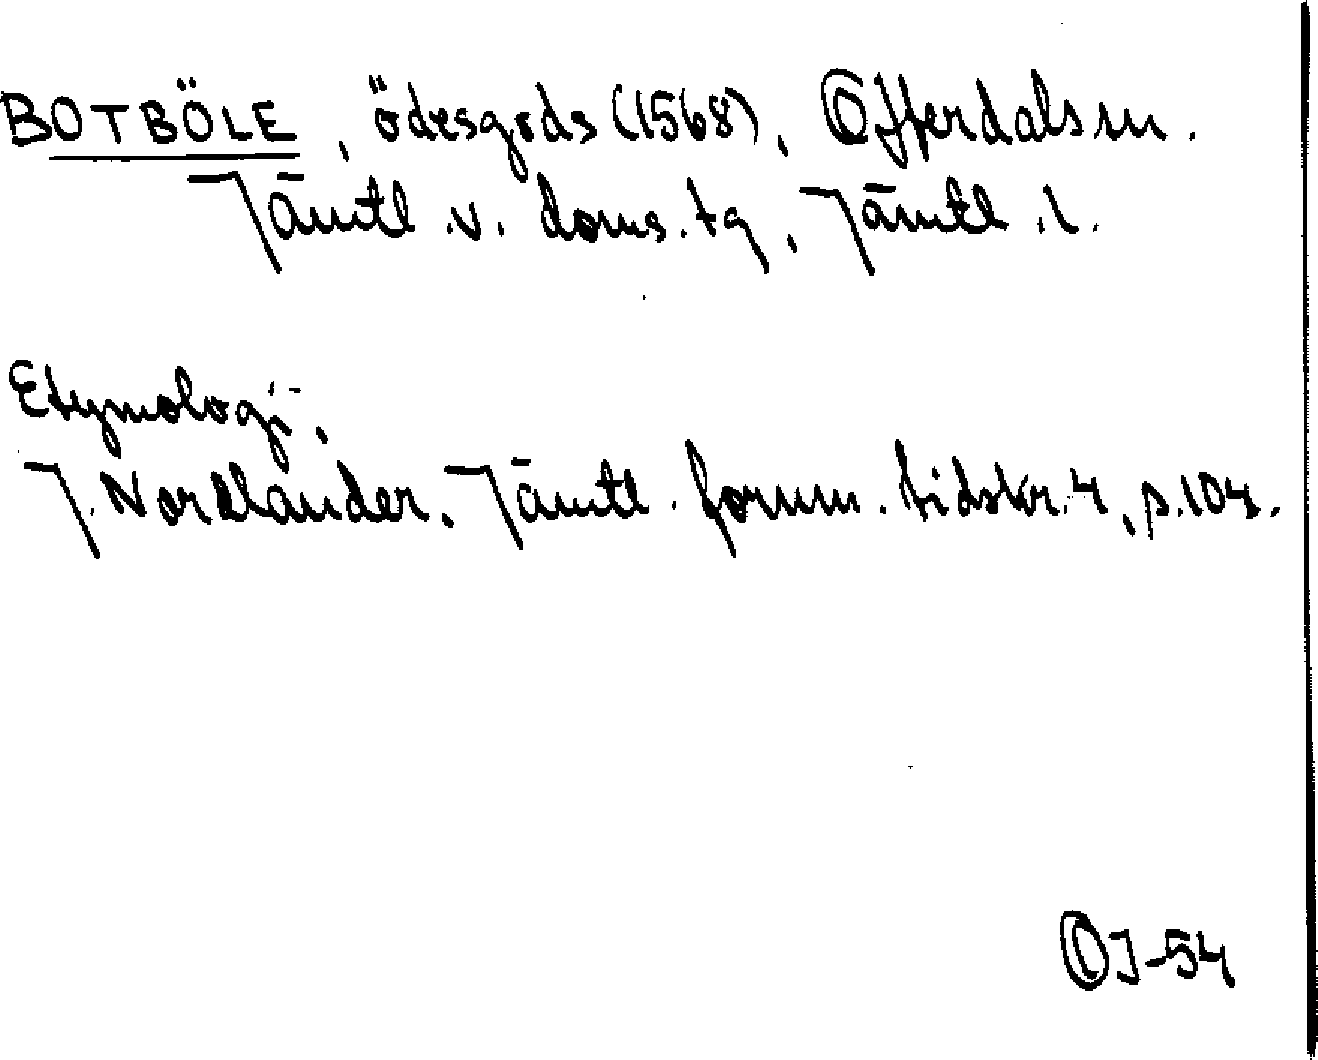 BOTBÖLE, ödesgods (1568), Offerdals sn.
Jämtl. v. doms. tg, Jämtl. l.
Etymologi,
J. Nordlander. Jämtl. fornm. tidskr. 4, s. 104.
OJ-54